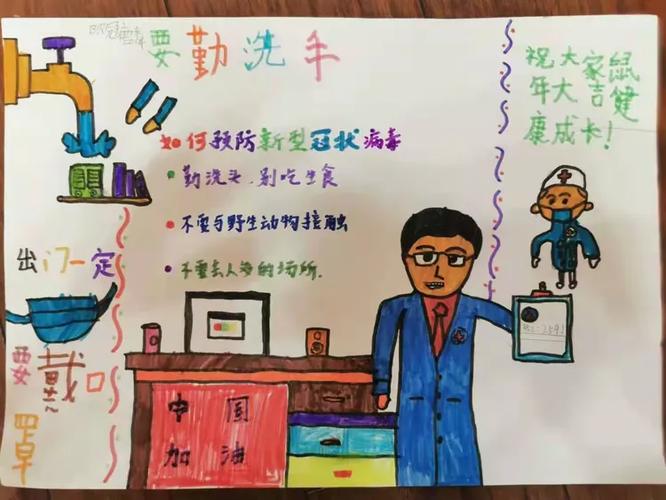 要勤洗手
祝大家鼠
年大吉健
康成长!
如何预防新型冠状病毒
勤洗头、别吃生食
不要与野生动物接触
不要去人多的场所.
出门一定
要戴口
罩
中国
加油